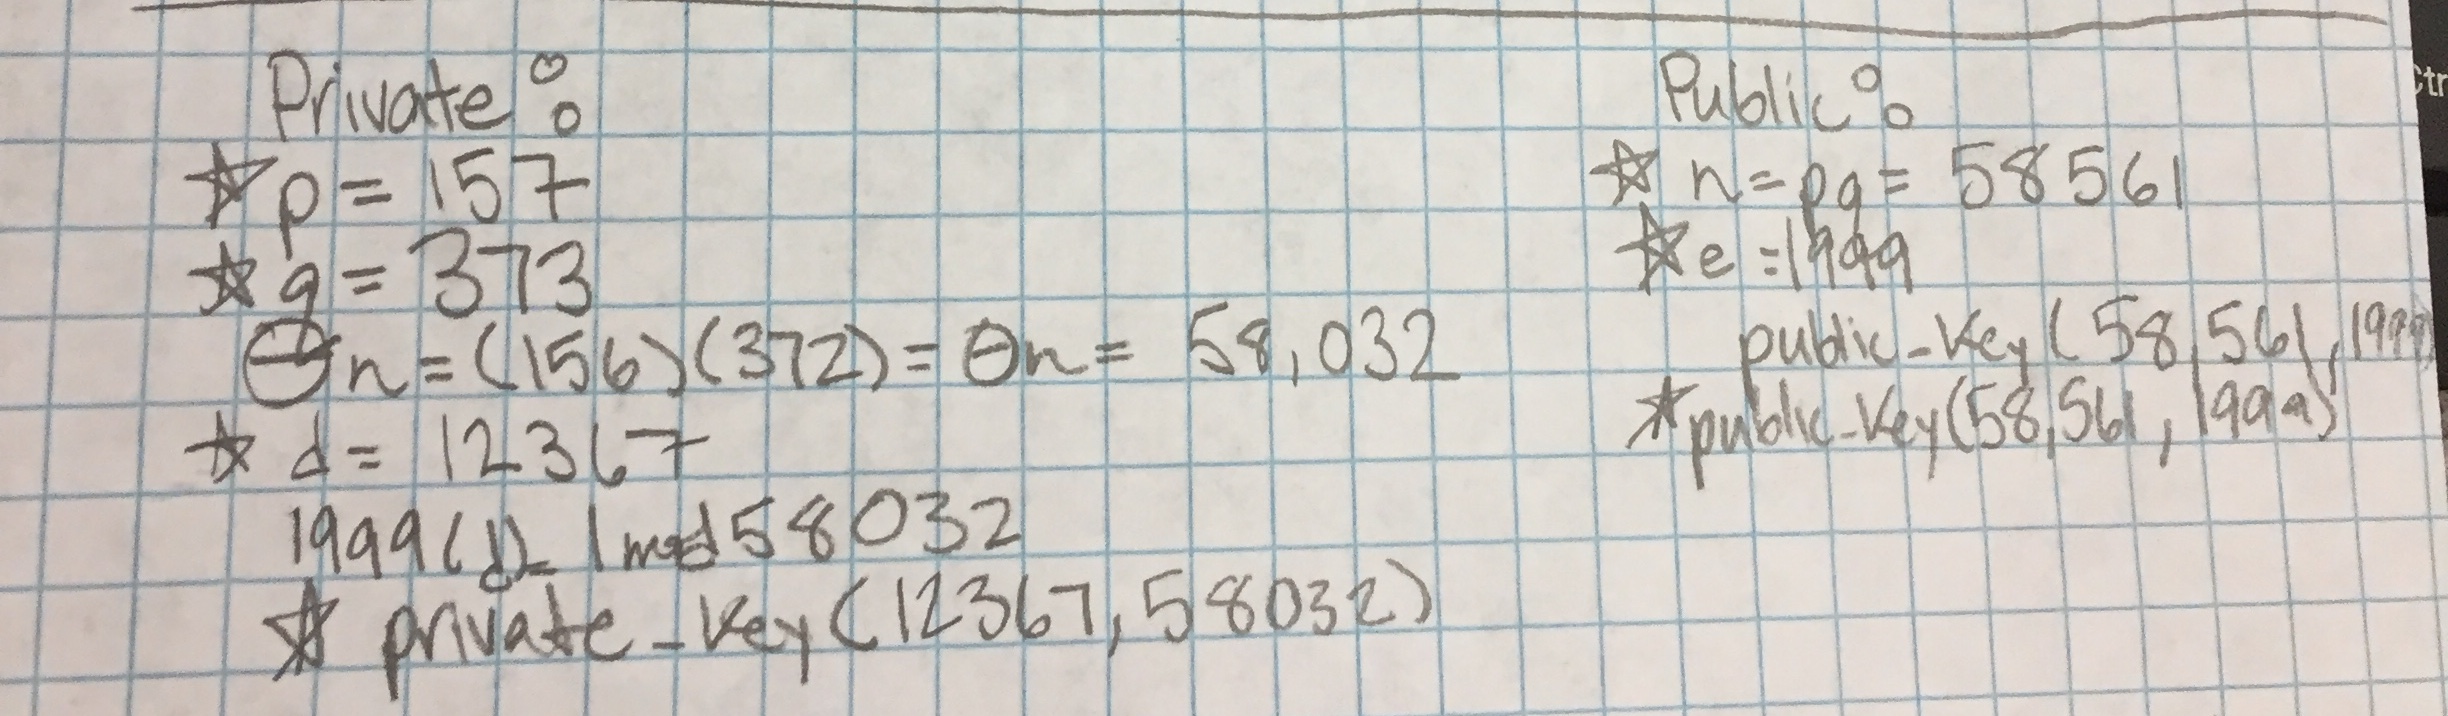 Private:
☆ p = 157
☆ q = 373
Θn = (156)(372) = Θn = 58,032
☆ d = 12367
1999(d)= 1 mod 58032
☆ private_key(12367, 58032)
Public:
☆ n = pq = 58561
☆ e = 1999
public_key(58,561, 1999)
☆ public_key(58,561, 1999)
Ctr